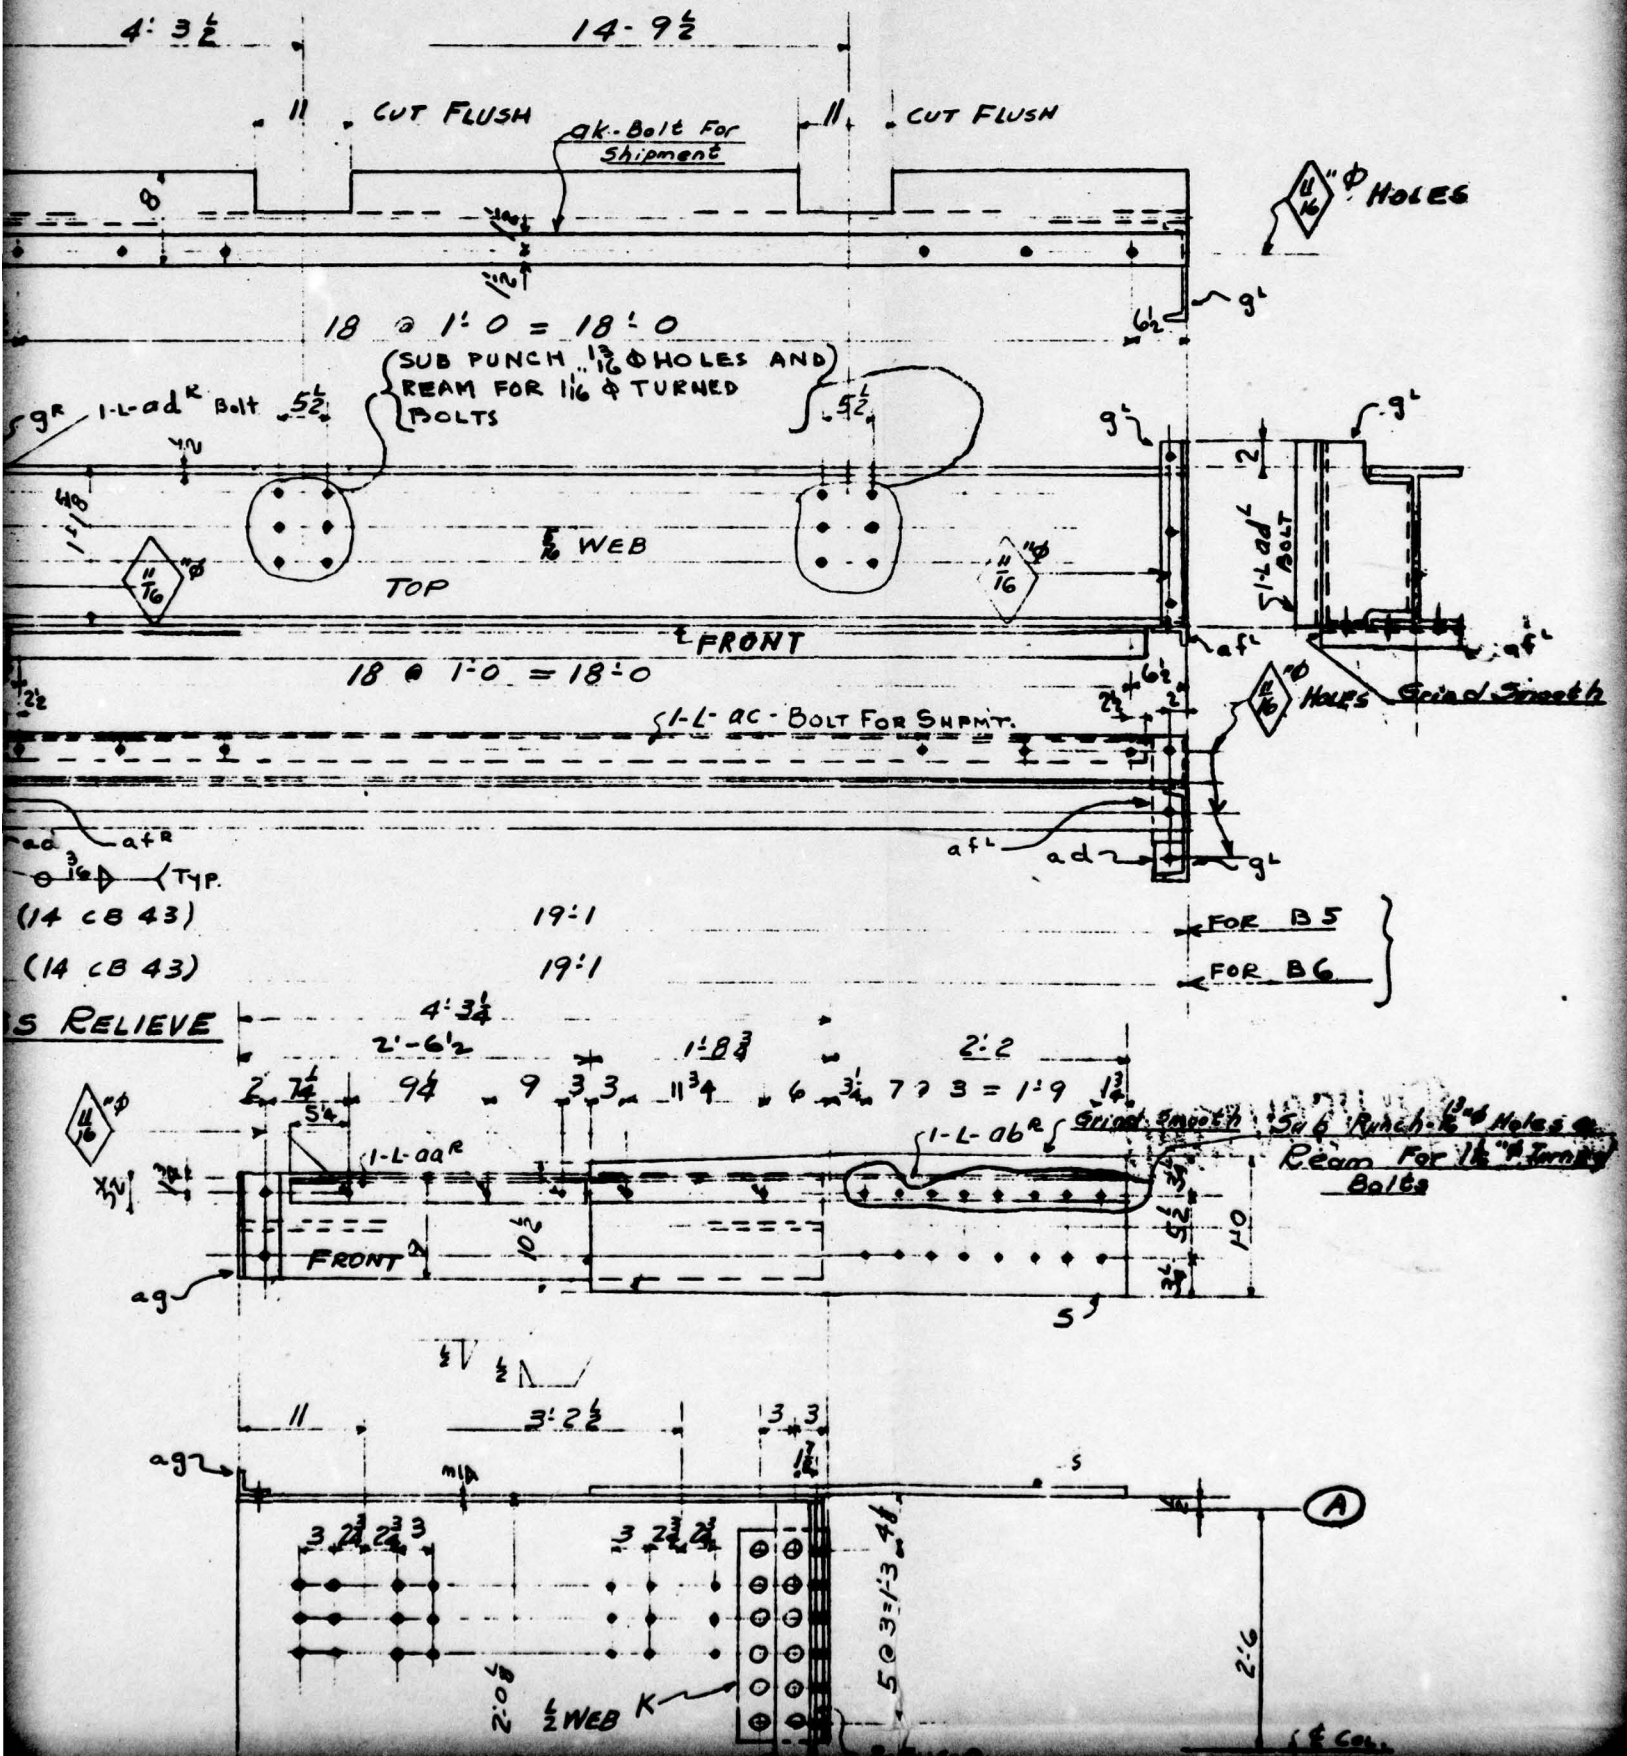 4'-3 1/2
14-9 1/2
11 CUT FLUSH
11 CUT FLUSH
ak-Bolt For
Shipment
8
11/16 "Φ HOLES
gL
18 @ 1'-0 = 18'-0
6 1/2
SUB PUNCH 13/16 Φ HOLES AND
REAM FOR 1 1/16 Φ TURNED
BOLTS
gR
1-L-adR Bolt
5 1/2
5 1/2
gL
gL
2
1-L adL
BOLT
5/16 WEB
11/16 "Φ
11/16 "Φ
TOP
FRONT
afL
afL
18 @ 1'-0 = 18'-0
6 1/2
2 1/2
2 1/2
2
11/16 "Φ HOLES
Grind Smooth
1-L-ac-BOLT FOR SHPMT.
ad
afR
3/16
TYP.
afL
ad
gL
(14 CB 43)
19'-1
FOR B5
(14 CB 43)
19'-1
FOR B6
S RELIEVE
4'-3 1/4
2'-6 1/2
1'-8 3/4
2'-2
2 7 1/4 9 1/4 9 3 3 11 3/4 6 3 1/4 7 @ 3 = 1'-9 1 3/4
5 1/4
11/16 "Φ
1-L-aaR
1-L-abR
Grind Smooth
Sub Punch 13/16 "Φ Holes
Ream For 1 1/16 "Φ
Bolts
10 1/2
5 1/2
3 1/4
FRONT
ag
S
1/2
1/2
11
3'-2 1/2
3 3
ag
S
A
3 2 3/4 2 3/4 3
3 2 3/4 2 3/4
5 @ 3 = 1'-3
2'-6
1/2 WEB
K